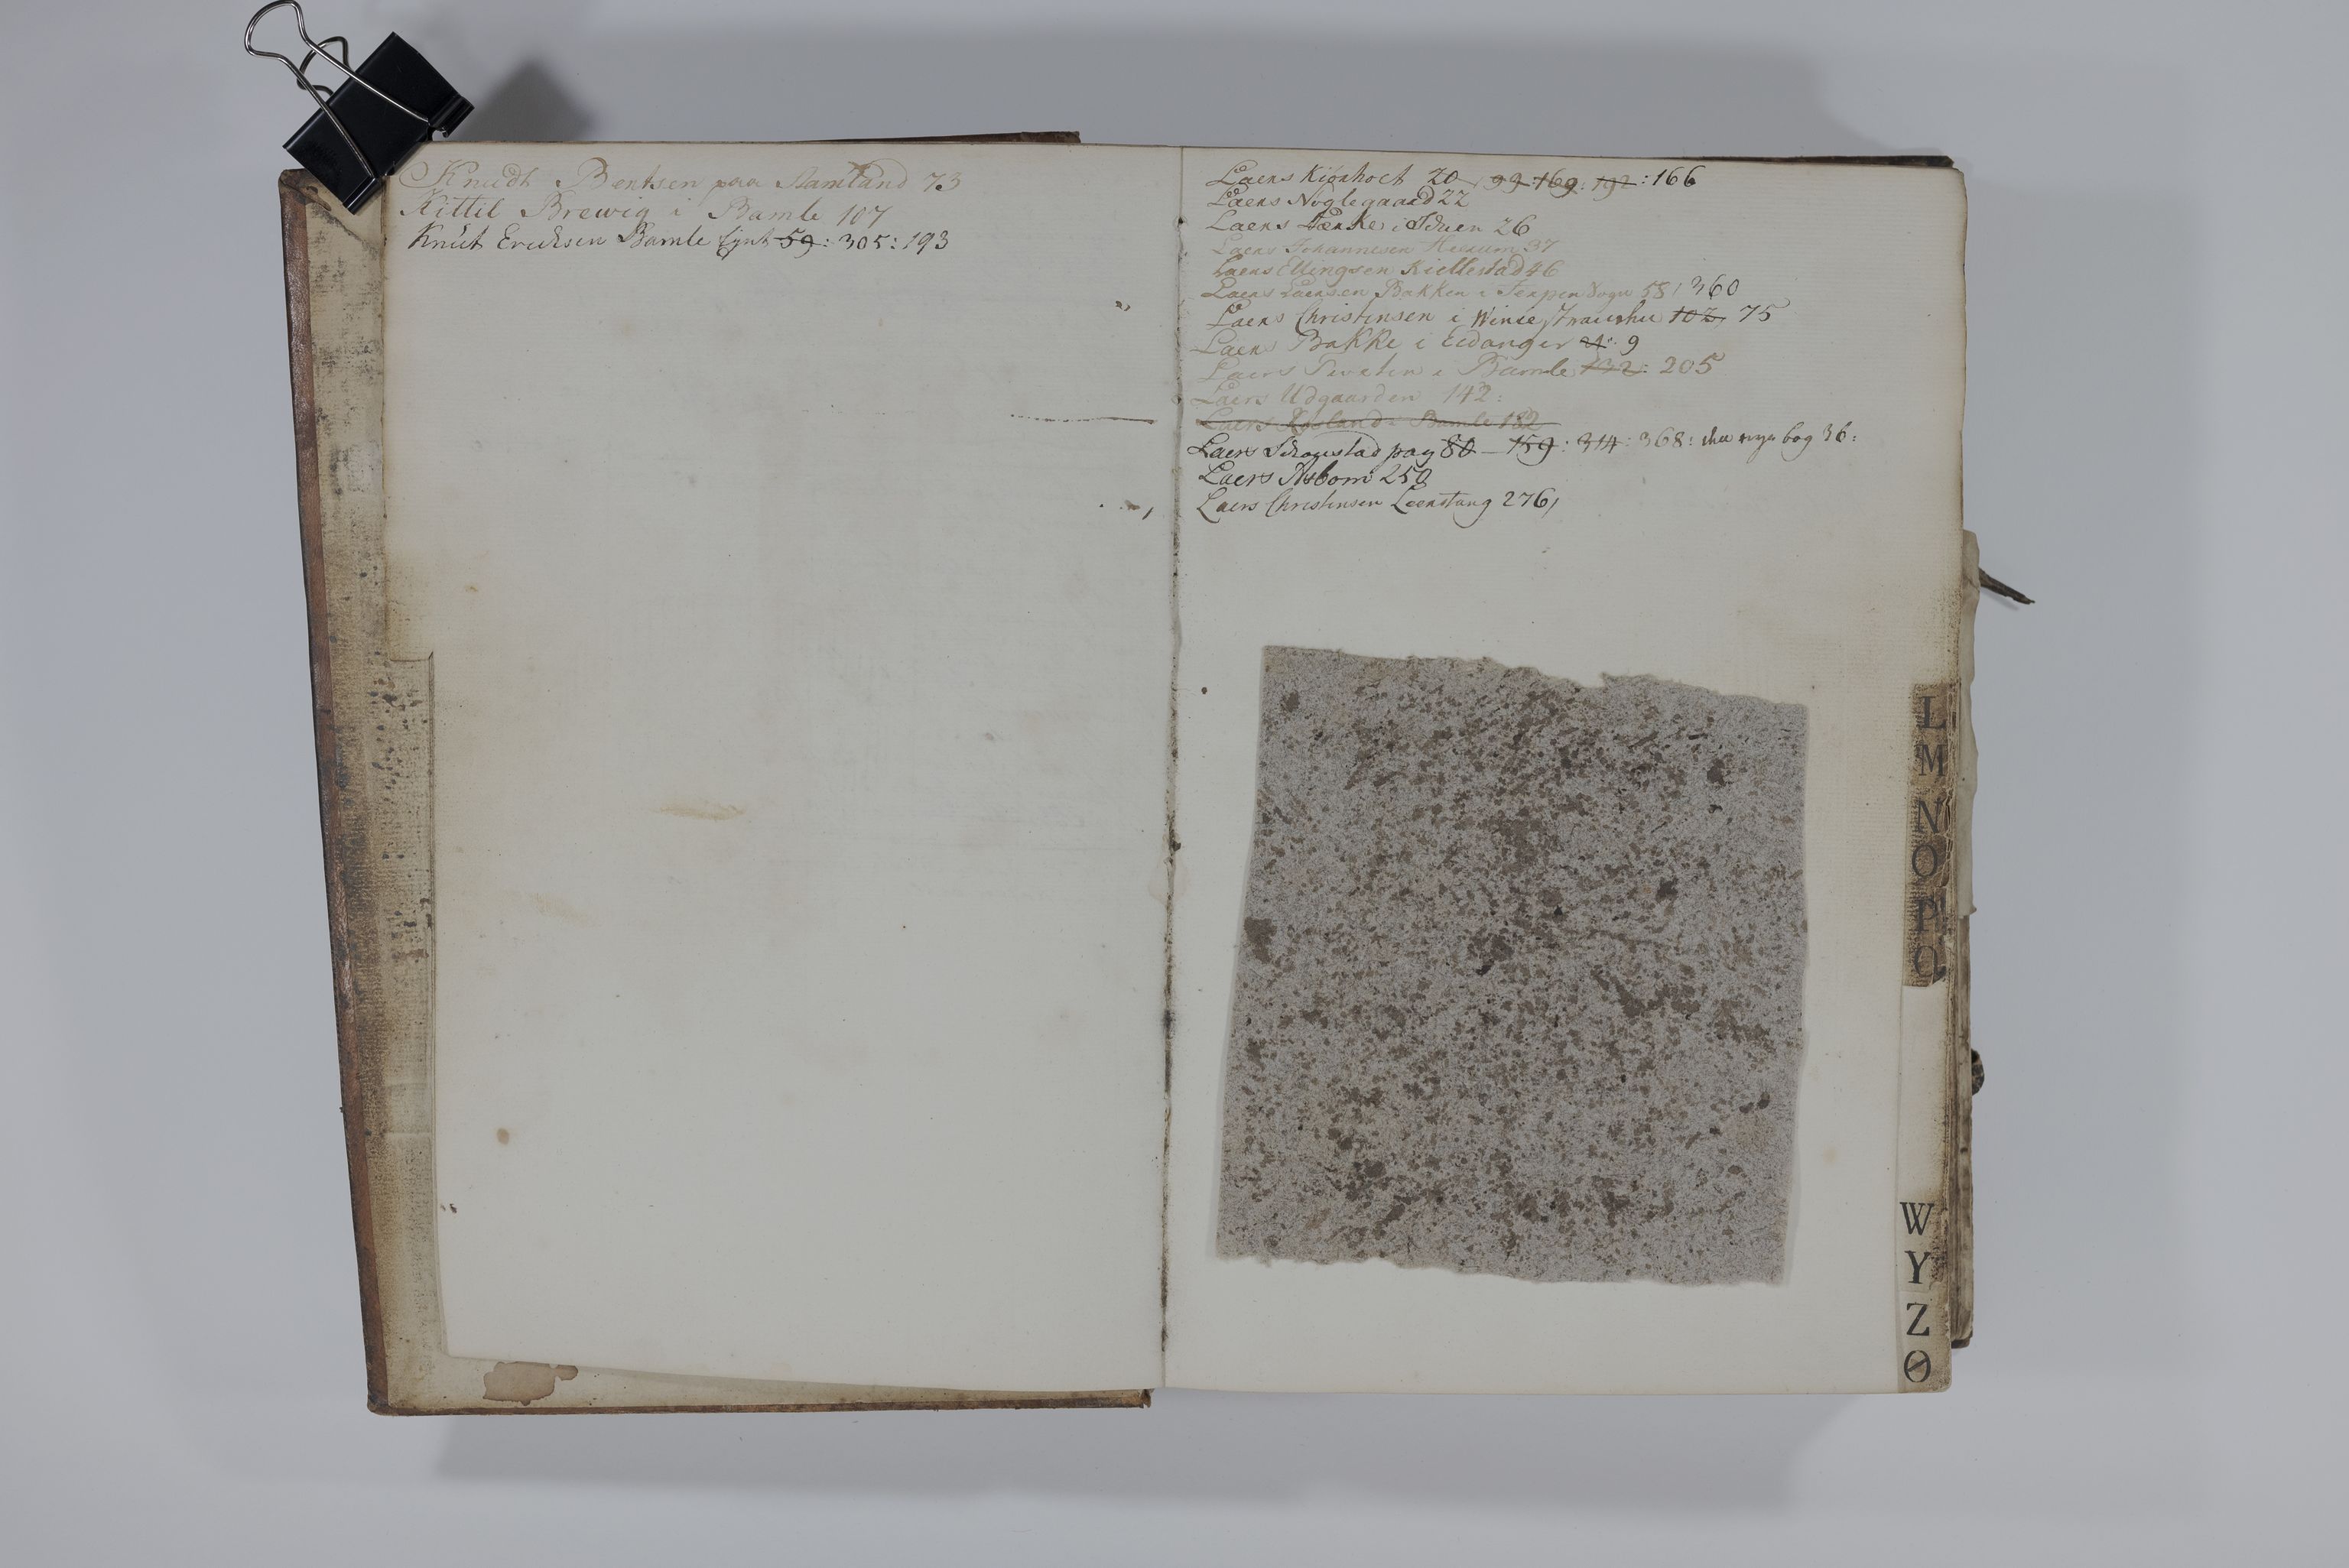 Knudt Bentsen paa Aamland 73
Kittil Brewig i Bamle 107
Knut Ericksen Bamle 59: 305: 193
Laers Kiönholt 20 99: 169: 192: 166
Laers Nöglegaard 22
Laers i Iduen 26
Laers Johannesen 37
Laers Ellingsen Kiellestad 46
Laers Laersen Bakken i Sogn 58, 360
Laers Christensen i 102, 75
Laers Bakke i Eidanger 9
Laers i Bamle 132: 205
Laers Udgaarden 142:
Laers i Bamle 182
Laers Schougstad pag 80 - 159: 314: 368: nye bog 36:
Laers Asbom 250
Laers Christensen Leerstang 276,
L
M
N
O
P
Q
W
Y
Z
Ø